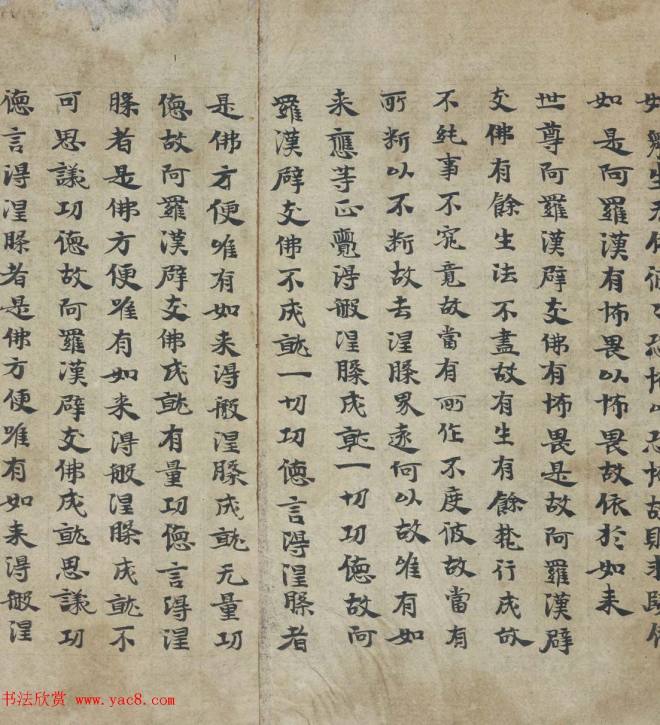 如眾生无依彼彼恐怖以恐怖故則求歸依
如是阿羅漢有怖畏以怖畏故依於如来
世尊阿羅漢辟支佛有怖畏是故阿羅漢辟
支佛有餘生法不盡故有生有餘梵行成故
不純事不究竟故當有所作不度彼故當有
所断以不断故去涅槃界遠何以故唯有如
来應等正覺得般涅槃成就一切功德故阿
羅漢辟支佛不成就一切功德言得涅槃者
是佛方便唯有如来得般涅槃成就无量功
德故阿羅漢辟支佛成就有量功德言得涅
槃者是佛方便唯有如来得般涅槃成就不
可思議功德故阿羅漢辟支佛成就思議功
德言得涅槃者是佛方便唯有如来得般涅
书法欣赏 www.yac8.com